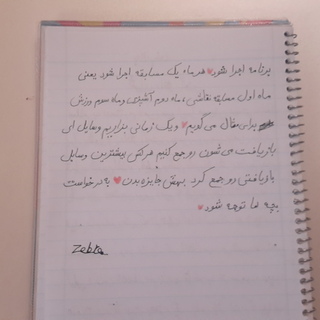 برنامه اجرا شود♥هر ماه یک مسابقه اجرا شود یعنی
ماه اول مسابقه نقاشی، ماه دوم آشپزی و ماه سوم ورزش
برای مثال می گویم♥و یک زمانی بزاریم وسایل ای
بازیافت می شون رو جمع کنیم هرکس بیشترین وسایل
بازیافتی رو جمع کرد بهش جایزه بدن♥یه درخواست
بچه ها توجه شود♥
Zebra